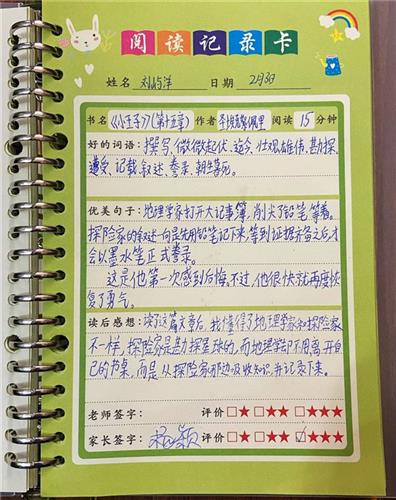 阅读记录卡
姓名 刘屿洋 日期 2月3日
书名《小王子》(第十五章) 作者 圣埃克苏佩里 阅读 15 分钟
好的词语:撰写、微微起伏、迄今、壮观雄伟、勘探、
遭受、记载、叙述、誊录、朝生暮死。
优美句子:地理学家打开大记事簿,削尖了铅笔,等着。
探险家的叙述一向是先用铅笔记下来,等到证据齐备之后才
会以墨水笔正式誊录。
这是他第一次感到后悔,不过,他很快就再度恢
复了勇气。
读后感想:读了这篇文章后,我懂得了地理学家和探险家
不一样,探险家是勘探星球的,而地理学却不用离开自
己的书桌,而是从探险家那边吸收知识,并记录下来。
老师签字: 评价 □★ □★★ □★★★
家长签字: 评价 □★ □★★ ☑★★★